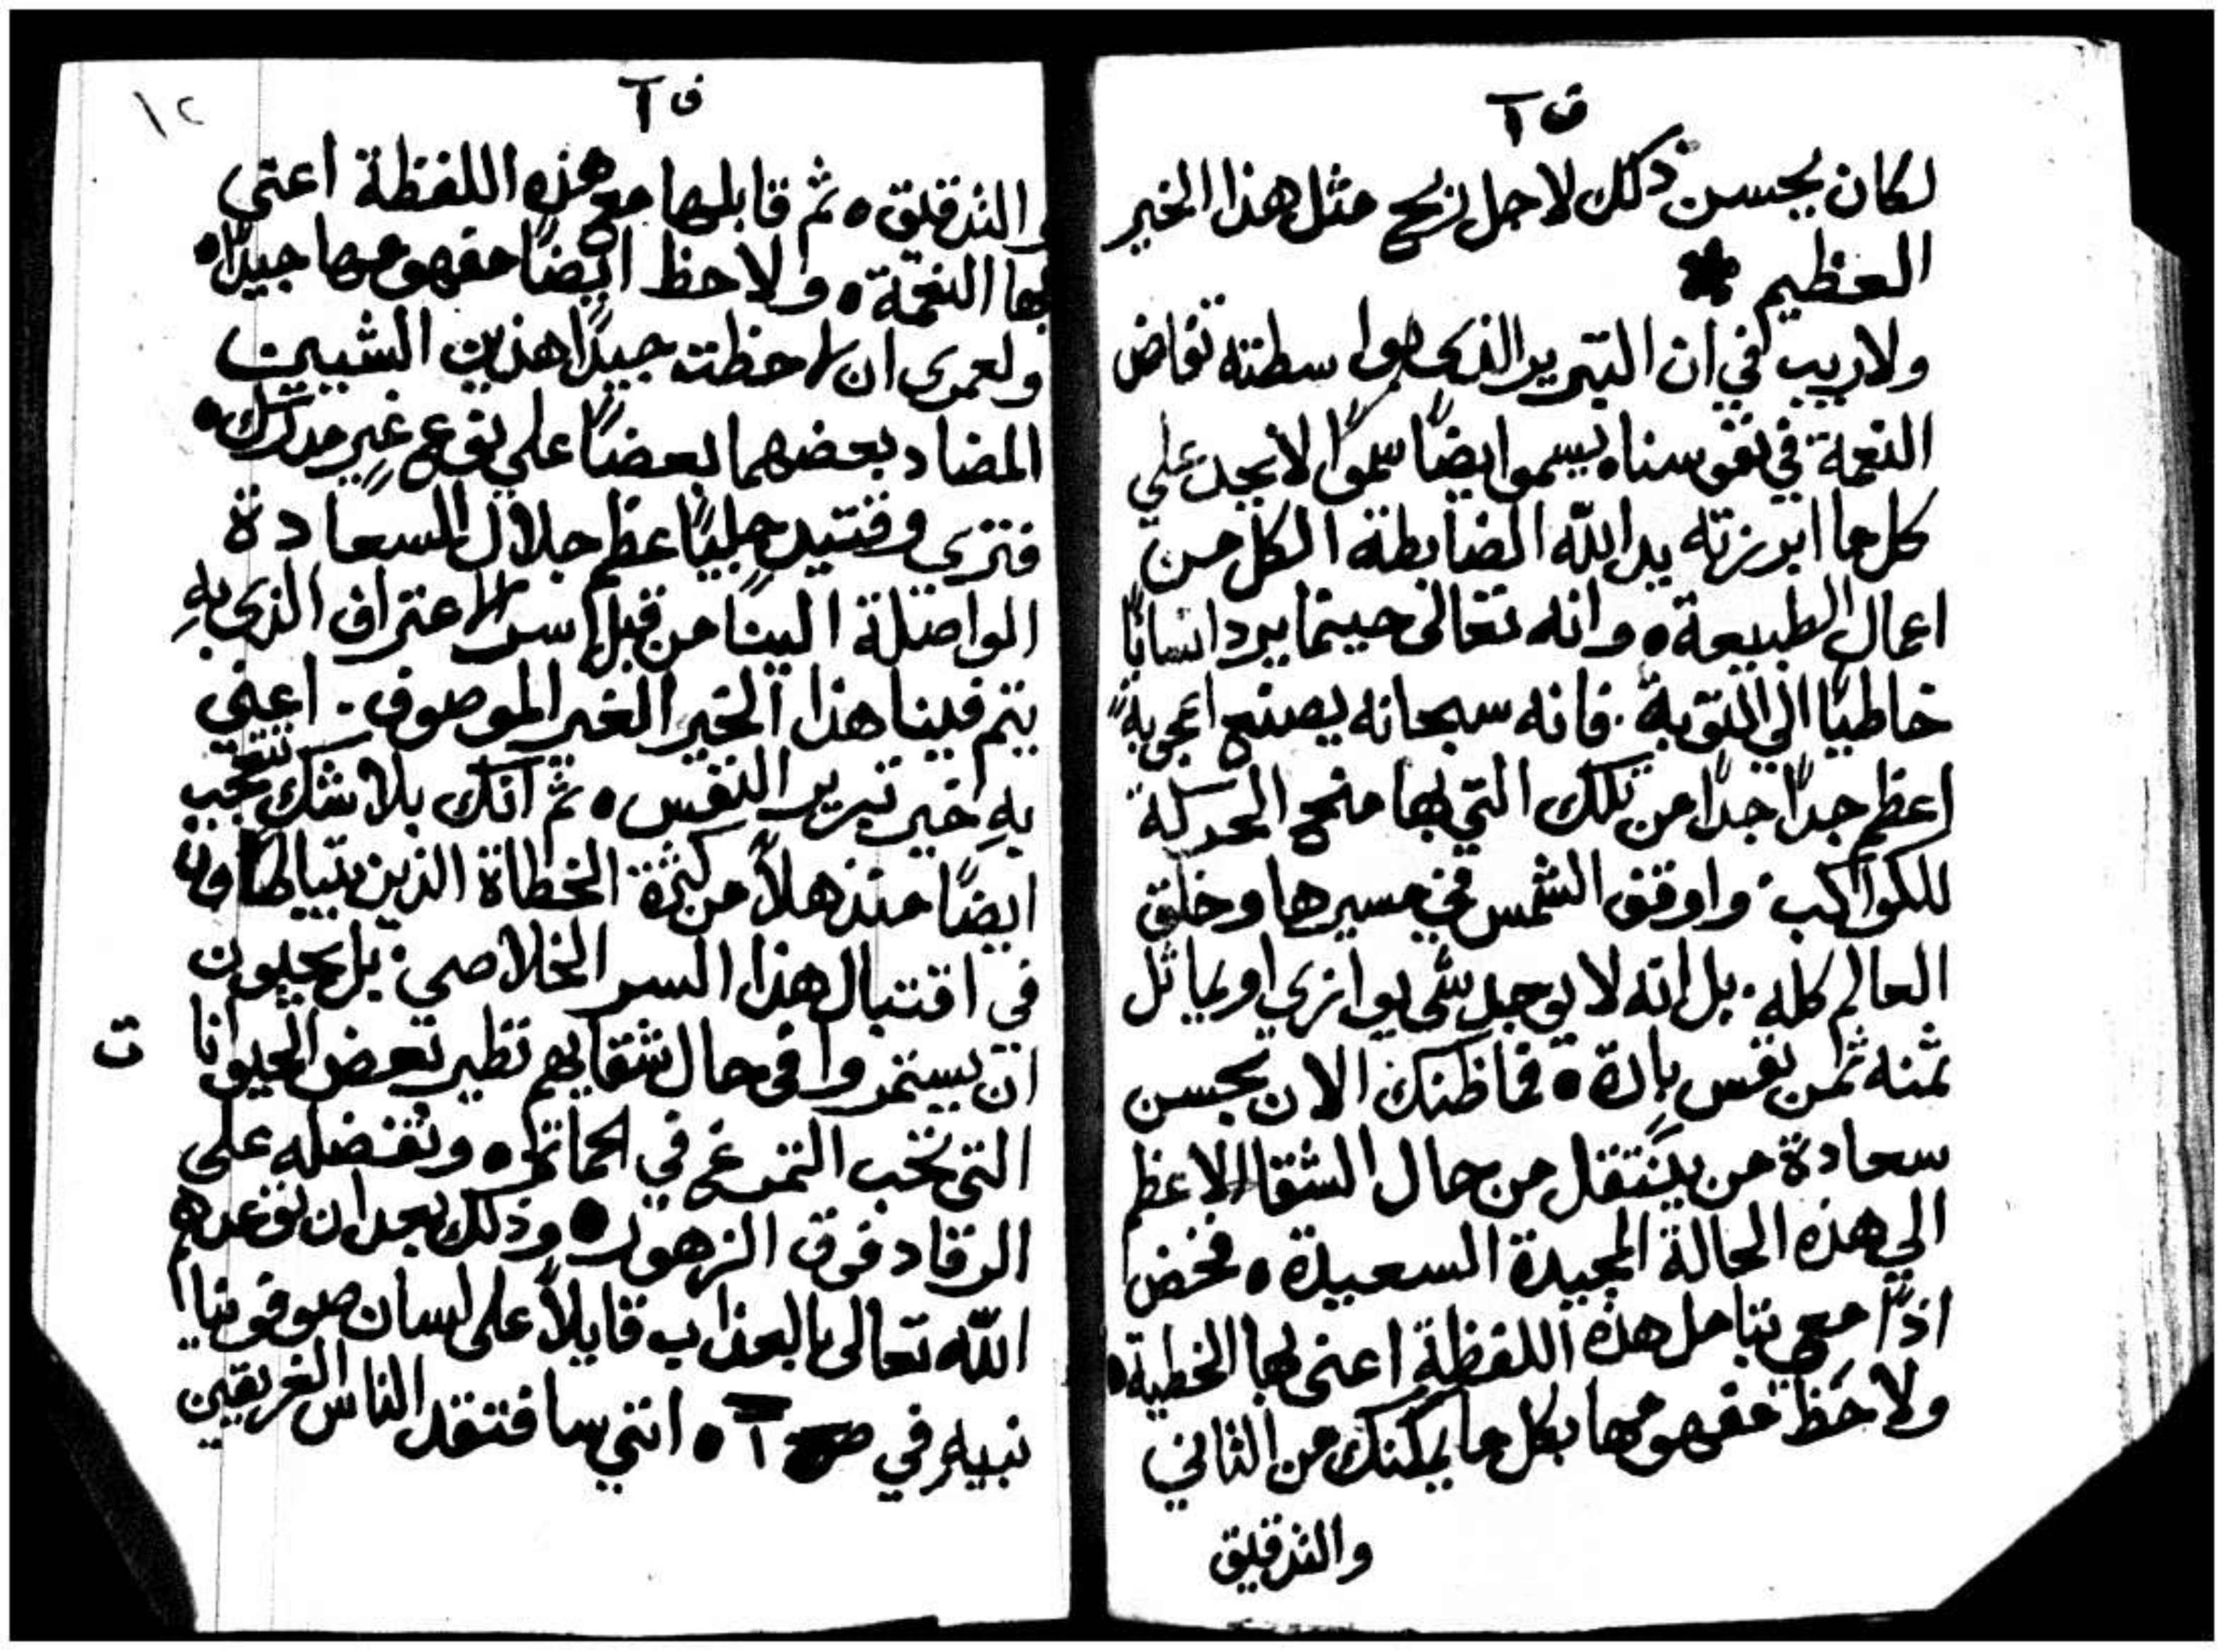 ق ١
لكان يحسن ذلك لاجل ربح مثل هذا الخير
العظيم
ولاريب في ان التبرير الذي هوا سطته تفاض
النعمة في نفوسناه يسموا يضًا سموًا لا يحد علي
كل ما ابرزته يد الله الضابطة الكل من
اعمال الطبيعة ٥ وانه تعالى حينما يرد انسانًا
خاطيًا الي التوبة ٠ فانه سبحانه يصنع اعجوبةً
اعظم جدًا جدًا من تلك التي بها منح الحركة
للكواكب ٠ واوقف الشمس في مسيرها وخلق
العالم كله ٠ بل انه لا يوجد شي يوازي او يماثل
ثمنه ثمن نفس بارة ٥ فما ظنك الان بحسن
سعادة من ينتقل من حال الشقا الاعظم
الي هذه الحالة المجيدة السعيدة ٥ فخض
اذًا معي بتامل هذه اللفظة اعني بها الخطية ٥
ولاحظ مفهومها بكل ما يمكنك من التاني
والتدقيق
ق ١
١٢
والتدقيق ٥ ثم قابلها مع هذه اللفظة اعني
بها النعمة ٥ ولاحظ ايضًا مفهومها جيدًا ٥
ولعمري ان لاحظت جيدًا هذين الشيين
المضاد بعضهما بعضًا علي نوع غير مدرك ٥
فتري وقتيدٍ جليًا عظم جلال السعادة
الواصلة الينا من قبل سر الاعتراف الذي بهِ
يتم فينا هذا الخير الغير الموصوف ٠ اعني
بهِ خير تبرير النفس ٥ ثم انك بلا شك تتعجب
ايضًا منذهلاً من كثرة الخطاة الذين يتباطاون
في اقتبال هذا السر الخلاصي ٠ بل يحبون
ان يستمروا في حال شقايهم نظير بعض الحيوانا
ت
التي تحب التمرغ في الحماة ٥ وتفضله علي
الرقاد فوق الزهور ٥ وذلك بعد ان توعدهم
الله تعالى بالعذاب قايلاً على لسان صوفونيا
نبيهِ في ص ١ ٥ انني سافتقد الناس الغريقين